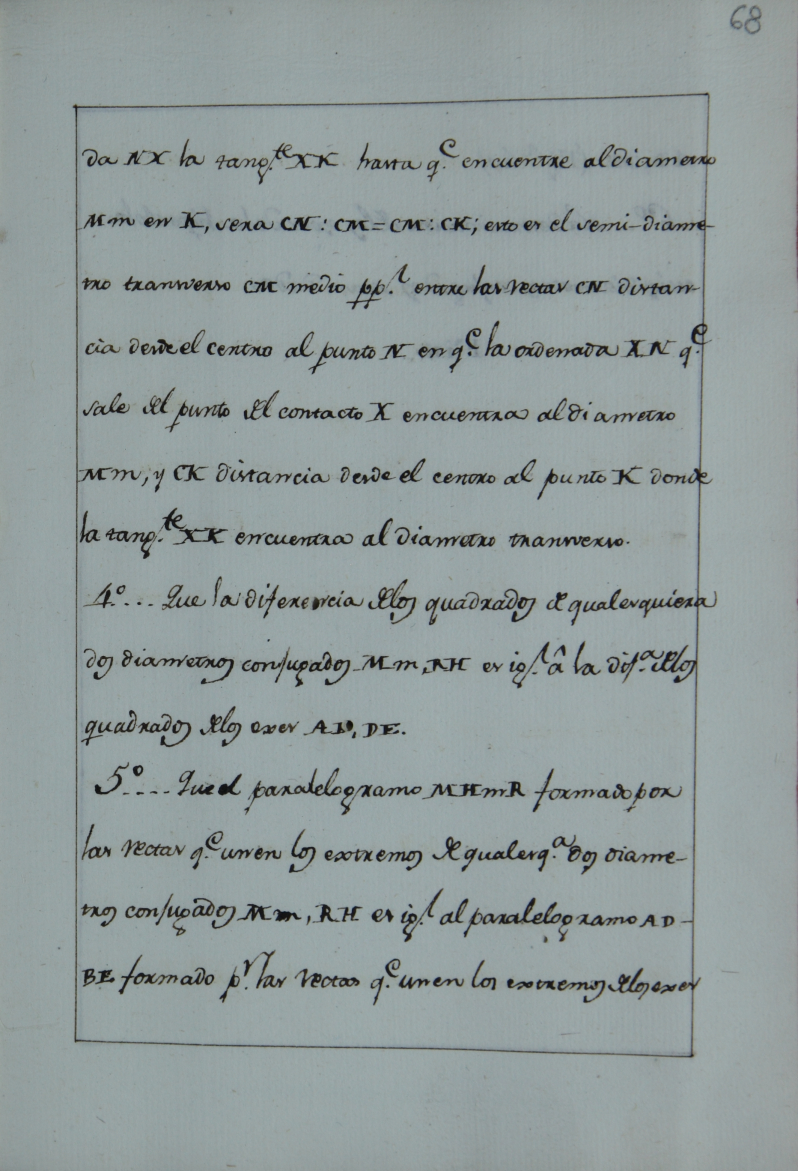 68
da NX la tang.te XK hasta q.e encuentre al diametro
Mm en K, sera CN: CM = CM: CK; esto es el semi-diame-
tro transverso CM medio pp.l entre las rectas CN distan-
cia desde el centro al punto N en q.e la ordenada XN q.e
sale del punto del contacto X encuentra al diametro
Mm, y CK distancia desde el centro al punto K donde
la tang.te XK encuentra al diametro transverso.
4.º... Que la diferencia delos quadrados de qualesquiera
dos diametros conjugados Mm, RH es ig.l â la dif.a delos
quadrados delos exes AB, DE.
5.º... Que el paralelogramo MHmR formado por
las rectas q.e unen los extremos de qualesq.a dos diame-
tros conjugados Mm, RH es ig.l al paralelogramo AD-
BE formado p.r las rectas q.e unen los extremos delos exes